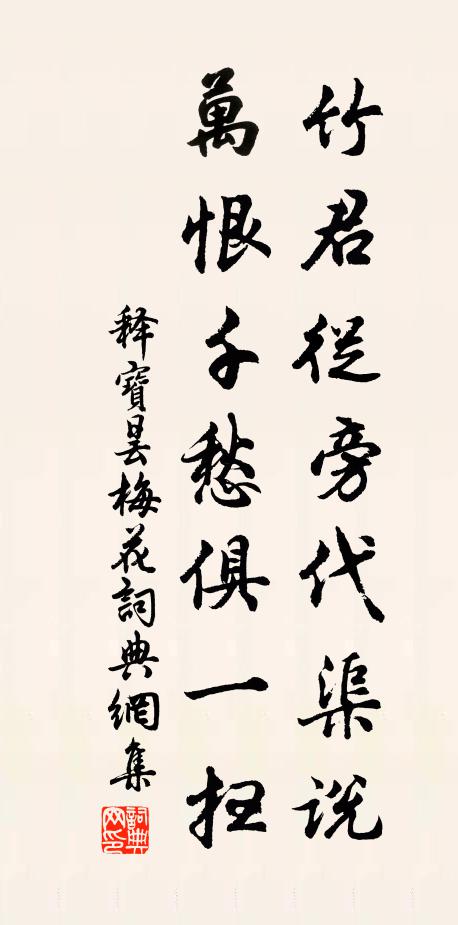 竹君從旁代渠説
萬恨千愁俱一掃
释寶曇梅花詞典網集
詞典網印